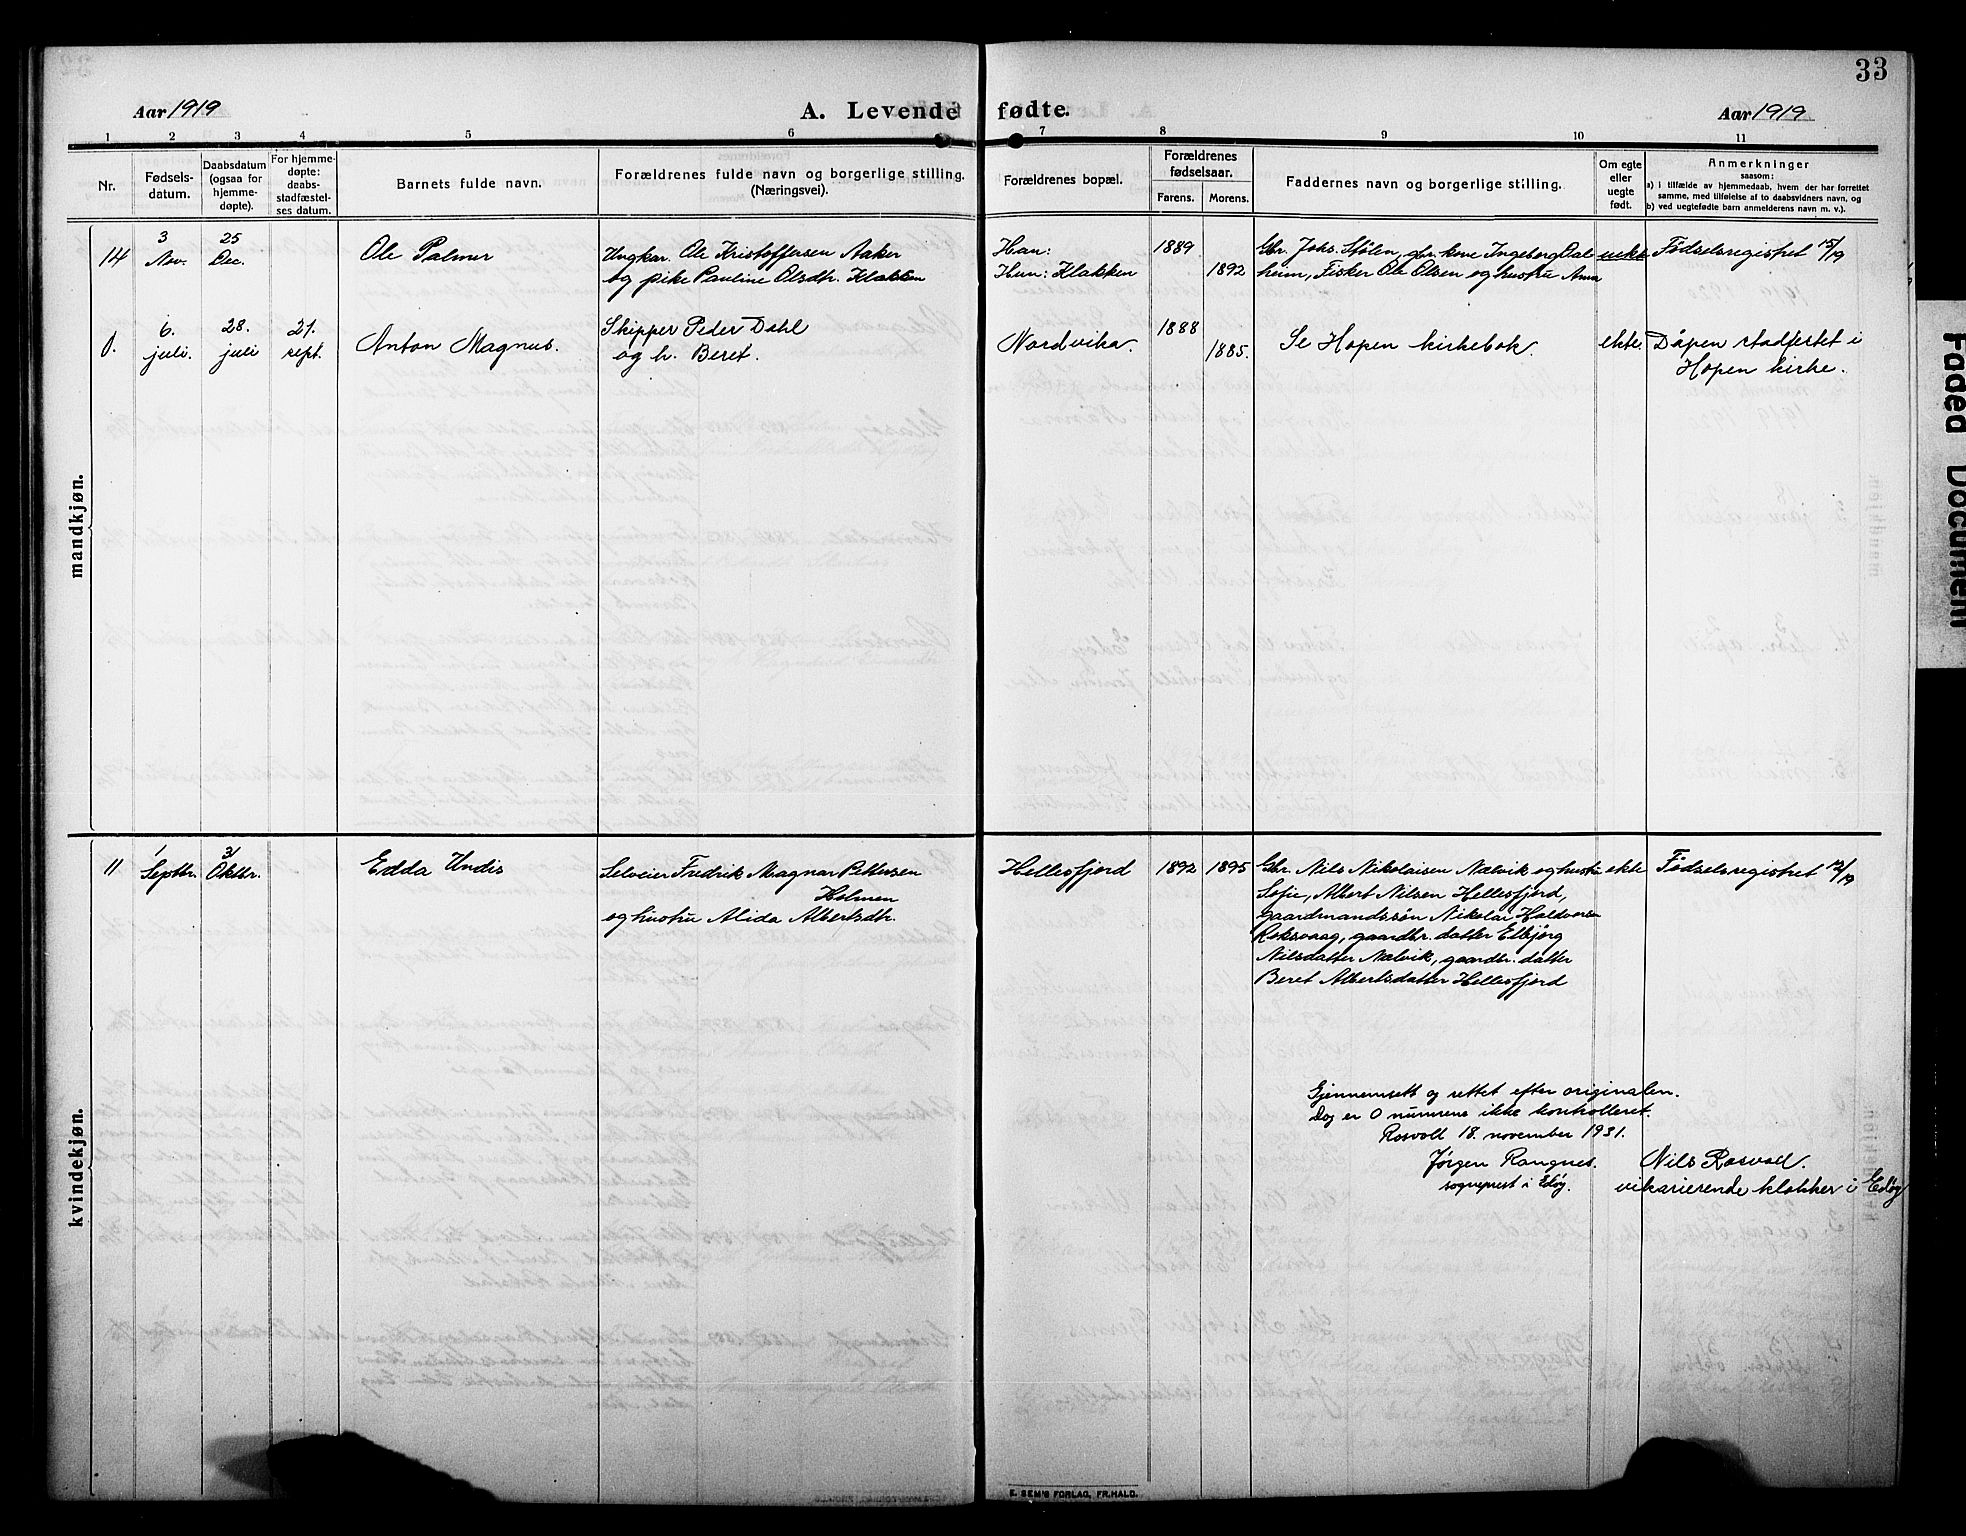 33
Aar 1919
A. Levende fødte.
Aar 1919
1 2 3 4 5 6 7 8 9 10 11
Nr.
Fødsels-
datum.
Daabsdatum
(ogsaa for
hjemme-
døpte).
For hjemme-
døpte:
daabs-
stadfæstel-
ses datum.
Barnets fulde navn.
Forældrenes fulde navn og borgerlige stilling.
(Næringsvei).
Forældrenes bopæl.
Forældrenes
fødselsaar.
Farens. Morens.
Faddernes navn og borgerlige stilling.
Om egte
eller
uegte
født.
Anmerkninger
saasom:
a) i tilfælde av hjemmedaab, hvem der har forrettet
samme, med tilføielse av to daabsvidners navn, og
b) ved uegtefødte barn anmelderens navn m. v.).
mandkjøn.
14
3
Nov.
25
Dec.
Ole Palmer
Ungkar Ole Kristoffersen Aaker
og pike Pauline Olsdtr. Klakken
Han:
Hun: Klakken
1889
1892
Gbr. Johs. Stølen, gbr. kone Ingeborg Dal
heim, Fisker Ole Olsen og hustru Anna
uekte
Fødselsregistret 15/19
0.
6.
juli.
28.
juli
21.
sept.
Anton Magnus.
Skipper Peder Dahl
og h. Beret.
Nordvika.
1888
1885.
Se Hopen kirkebok.
ekte.
Dåpen stadfestet i
Hopen kirke.
kvindekjøn.
11
1
Septbr.
31
Oktbr.
Edda Undis
Selveier Fredrik Magnar Pettersen
Holmen
og hustru Alida Albertsdtr.
Hellesfjord
1892
1895
Gbr. Nils Nikolaisen Nælvik og hustru
Sofie, Albert Nilsen Hellesfjord,
gaardmandssøn Nikolai Haldorsen
Roksvaag, gaardbr. datter Elbjørg
Nilsdatter Nælvik, gaardbr. datter
Beret Albertsdatter Hellesfjord
ekte
Fødselsregistret 12/19
Gjennemsett og rettet efter originalen.
Dog er 0 numrene ikke kontrolleret.
Rosvoll 18. november 1931.
Jørgen Rangnes.
sogneprest i Edøy.
Nils Rosvoll.
vikarierende klokker i Edøy
E. SEM'S FORLAG, FR.HALD.
Faded Document